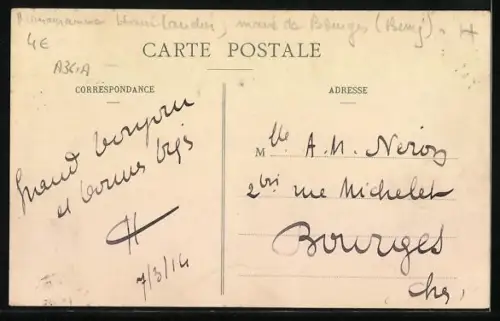 maire de Bourges (Berry).
4€
A36.A
CARTE POSTALE
CORRESPONDANCE
ADRESSE
Grand bonjour
et bonnes
H
7/3/14
Mlle A. M.
2 bis rue Michelet
Bourges
Cher